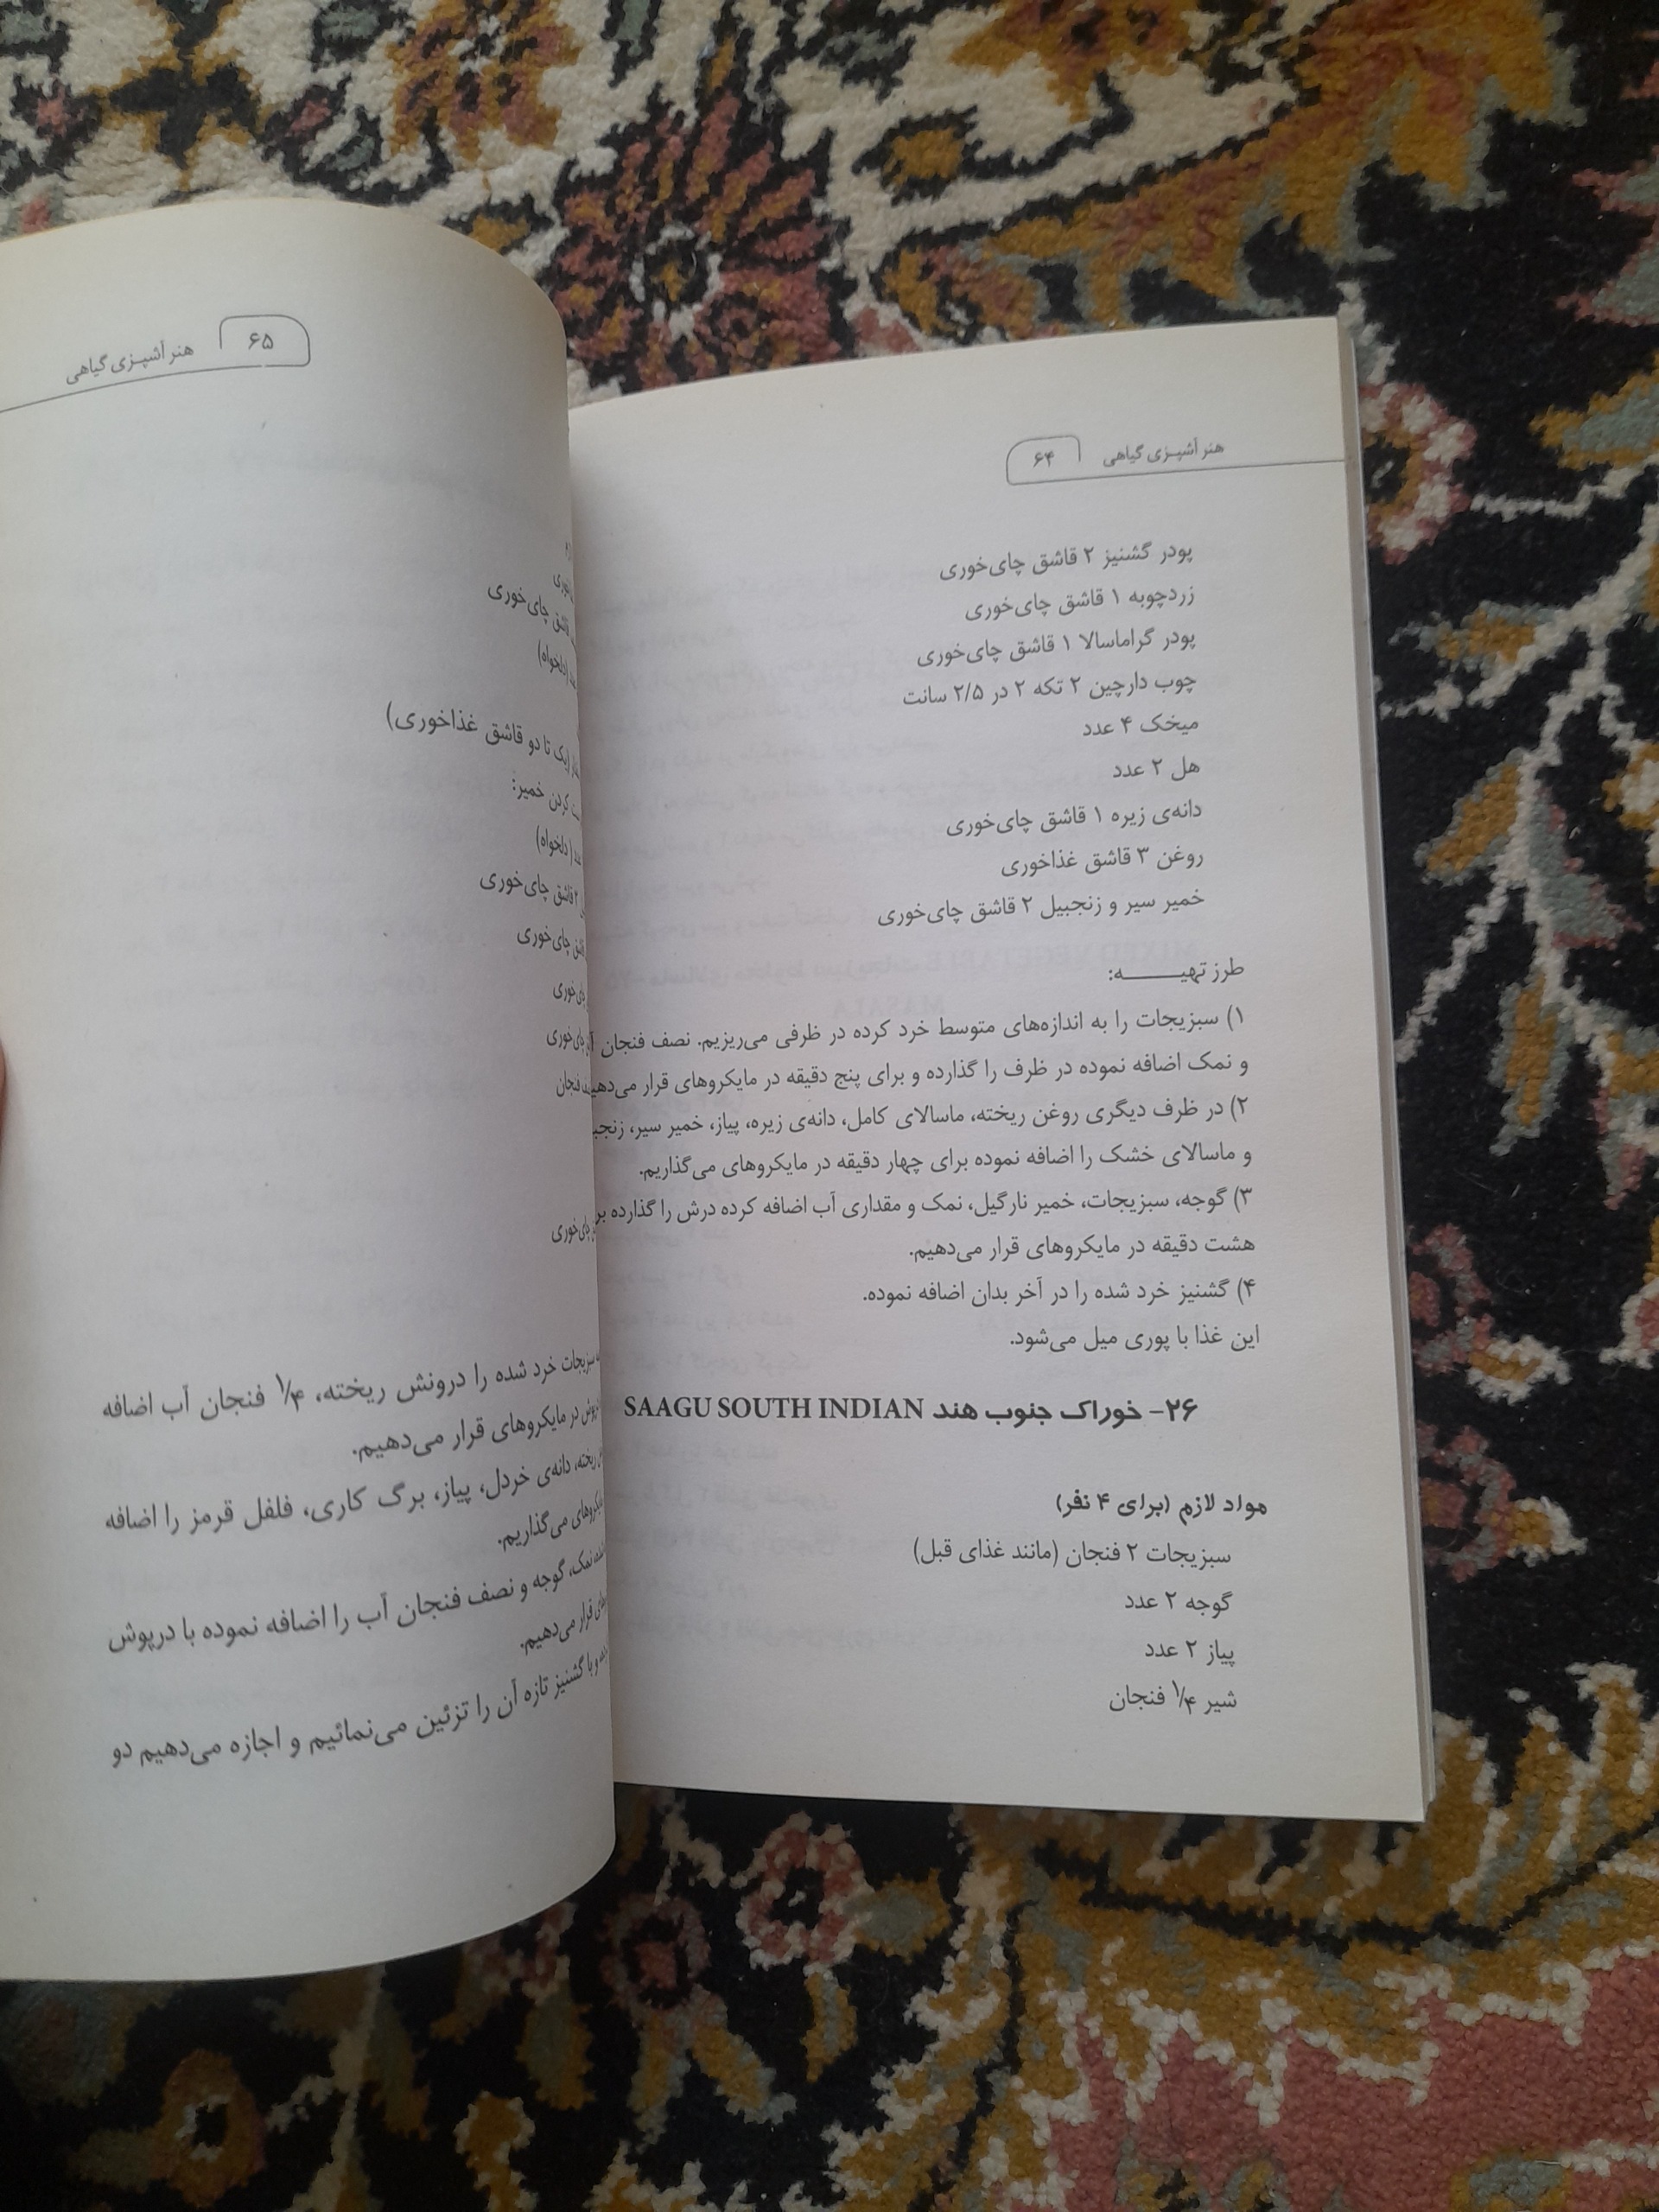 هنر آشپزی گیاهی ۶۴
پودر گشنیز ۲ قاشق چای‌خوری
زردچوبه ۱ قاشق چای‌خوری
پودر گراماسالا ۱ قاشق چای‌خوری
چوب دارچین ۲ تکه ۲ در ۲/۵ سانت
میخک ۴ عدد
هل ۲ عدد
دانه‌ی زیره ۱ قاشق چای‌خوری
روغن ۳ قاشق غذاخوری
خمیر سیر و زنجبیل ۲ قاشق چای‌خوری
طرز تهیـــــه:
۱) سبزیجات را به اندازه‌های متوسط خرد کرده در ظرفی می‌ریزیم. نصف فنجان
و نمک اضافه نموده در ظرف را گذارده و برای پنج دقیقه در مایکروهای قرار
۲) در ظرف دیگری روغن ریخته، ماسالای کامل، دانه‌ی زیره، پیاز، خمیر سیر،
و ماسالای خشک را اضافه نموده برای چهار دقیقه در مایکروهای می‌گذاریم.
۳) گوجه، سبزیجات، خمیر نارگیل، نمک و مقداری آب اضافه کرده درش را گذارده
هشت دقیقه در مایکروهای قرار می‌دهیم.
۴) گشنیز خرد شده را در آخر بدان اضافه نموده.
این غذا با پوری میل می‌شود.
۲۶- خوراک جنوب هند SAAGU SOUTH INDIAN
مواد لازم (برای ۴ نفر)
سبزیجات ۲ فنجان (مانند غذای قبل)
گوجه ۲ عدد
پیاز ۲ عدد
شیر ۱/۴ فنجان
۶۵ هنر آشپزی گیاهی
قاشق چای‌خوری
(دلخواه)
تا دو قاشق غذاخوری)
کردن خمیر:
(دلخواه)
۲ قاشق چای‌خوری
قاشق چای‌خوری
چای‌خوری
چای‌خوری
فنجان
چای‌خوری
سبزیجات خرد شده را درونش ریخته، ۱/۴ فنجان آب اضافه
در مایکروهای قرار می‌دهیم.
ریخته، دانه‌ی خردل، پیاز، برگ کاری، فلفل قرمز را اضافه
می‌گذاریم.
نمک، گوجه و نصف فنجان آب را اضافه نموده با درپوش
قرار می‌دهیم.
و با گشنیز تازه آن را تزئین می‌نمائیم و اجازه می‌دهیم دو